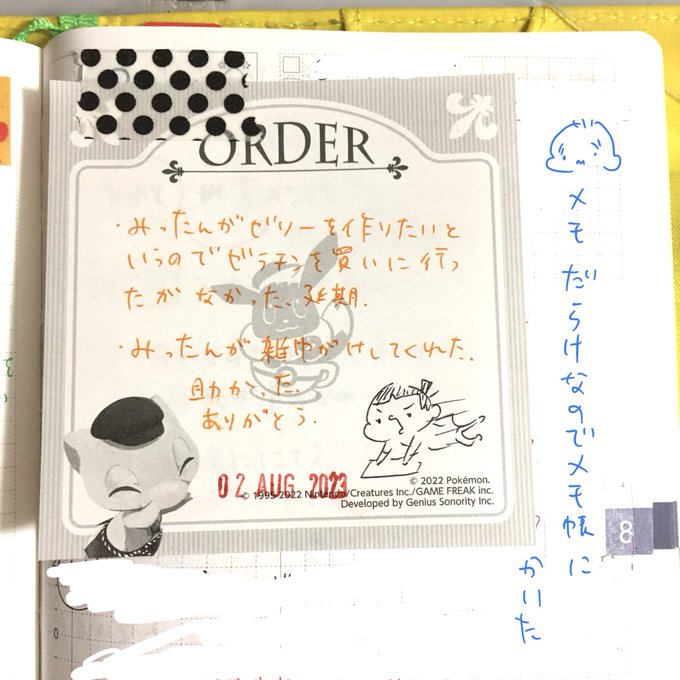 ORDER
・みったんがゼリーを作りたいと
いうのでゼラチンを買いに行っ
たがなかった、延期.
・みったんが雑巾がけしてくれた、
助かった.
ありがとう.
02 AUG. 2023
© 2022 Pokémon.
© 1995-2022 Nintendo/Creatures Inc./GAME FREAK inc.
Developed by Genius Sonority Inc.
メモだらけなのでメモ帳に
かいた
8